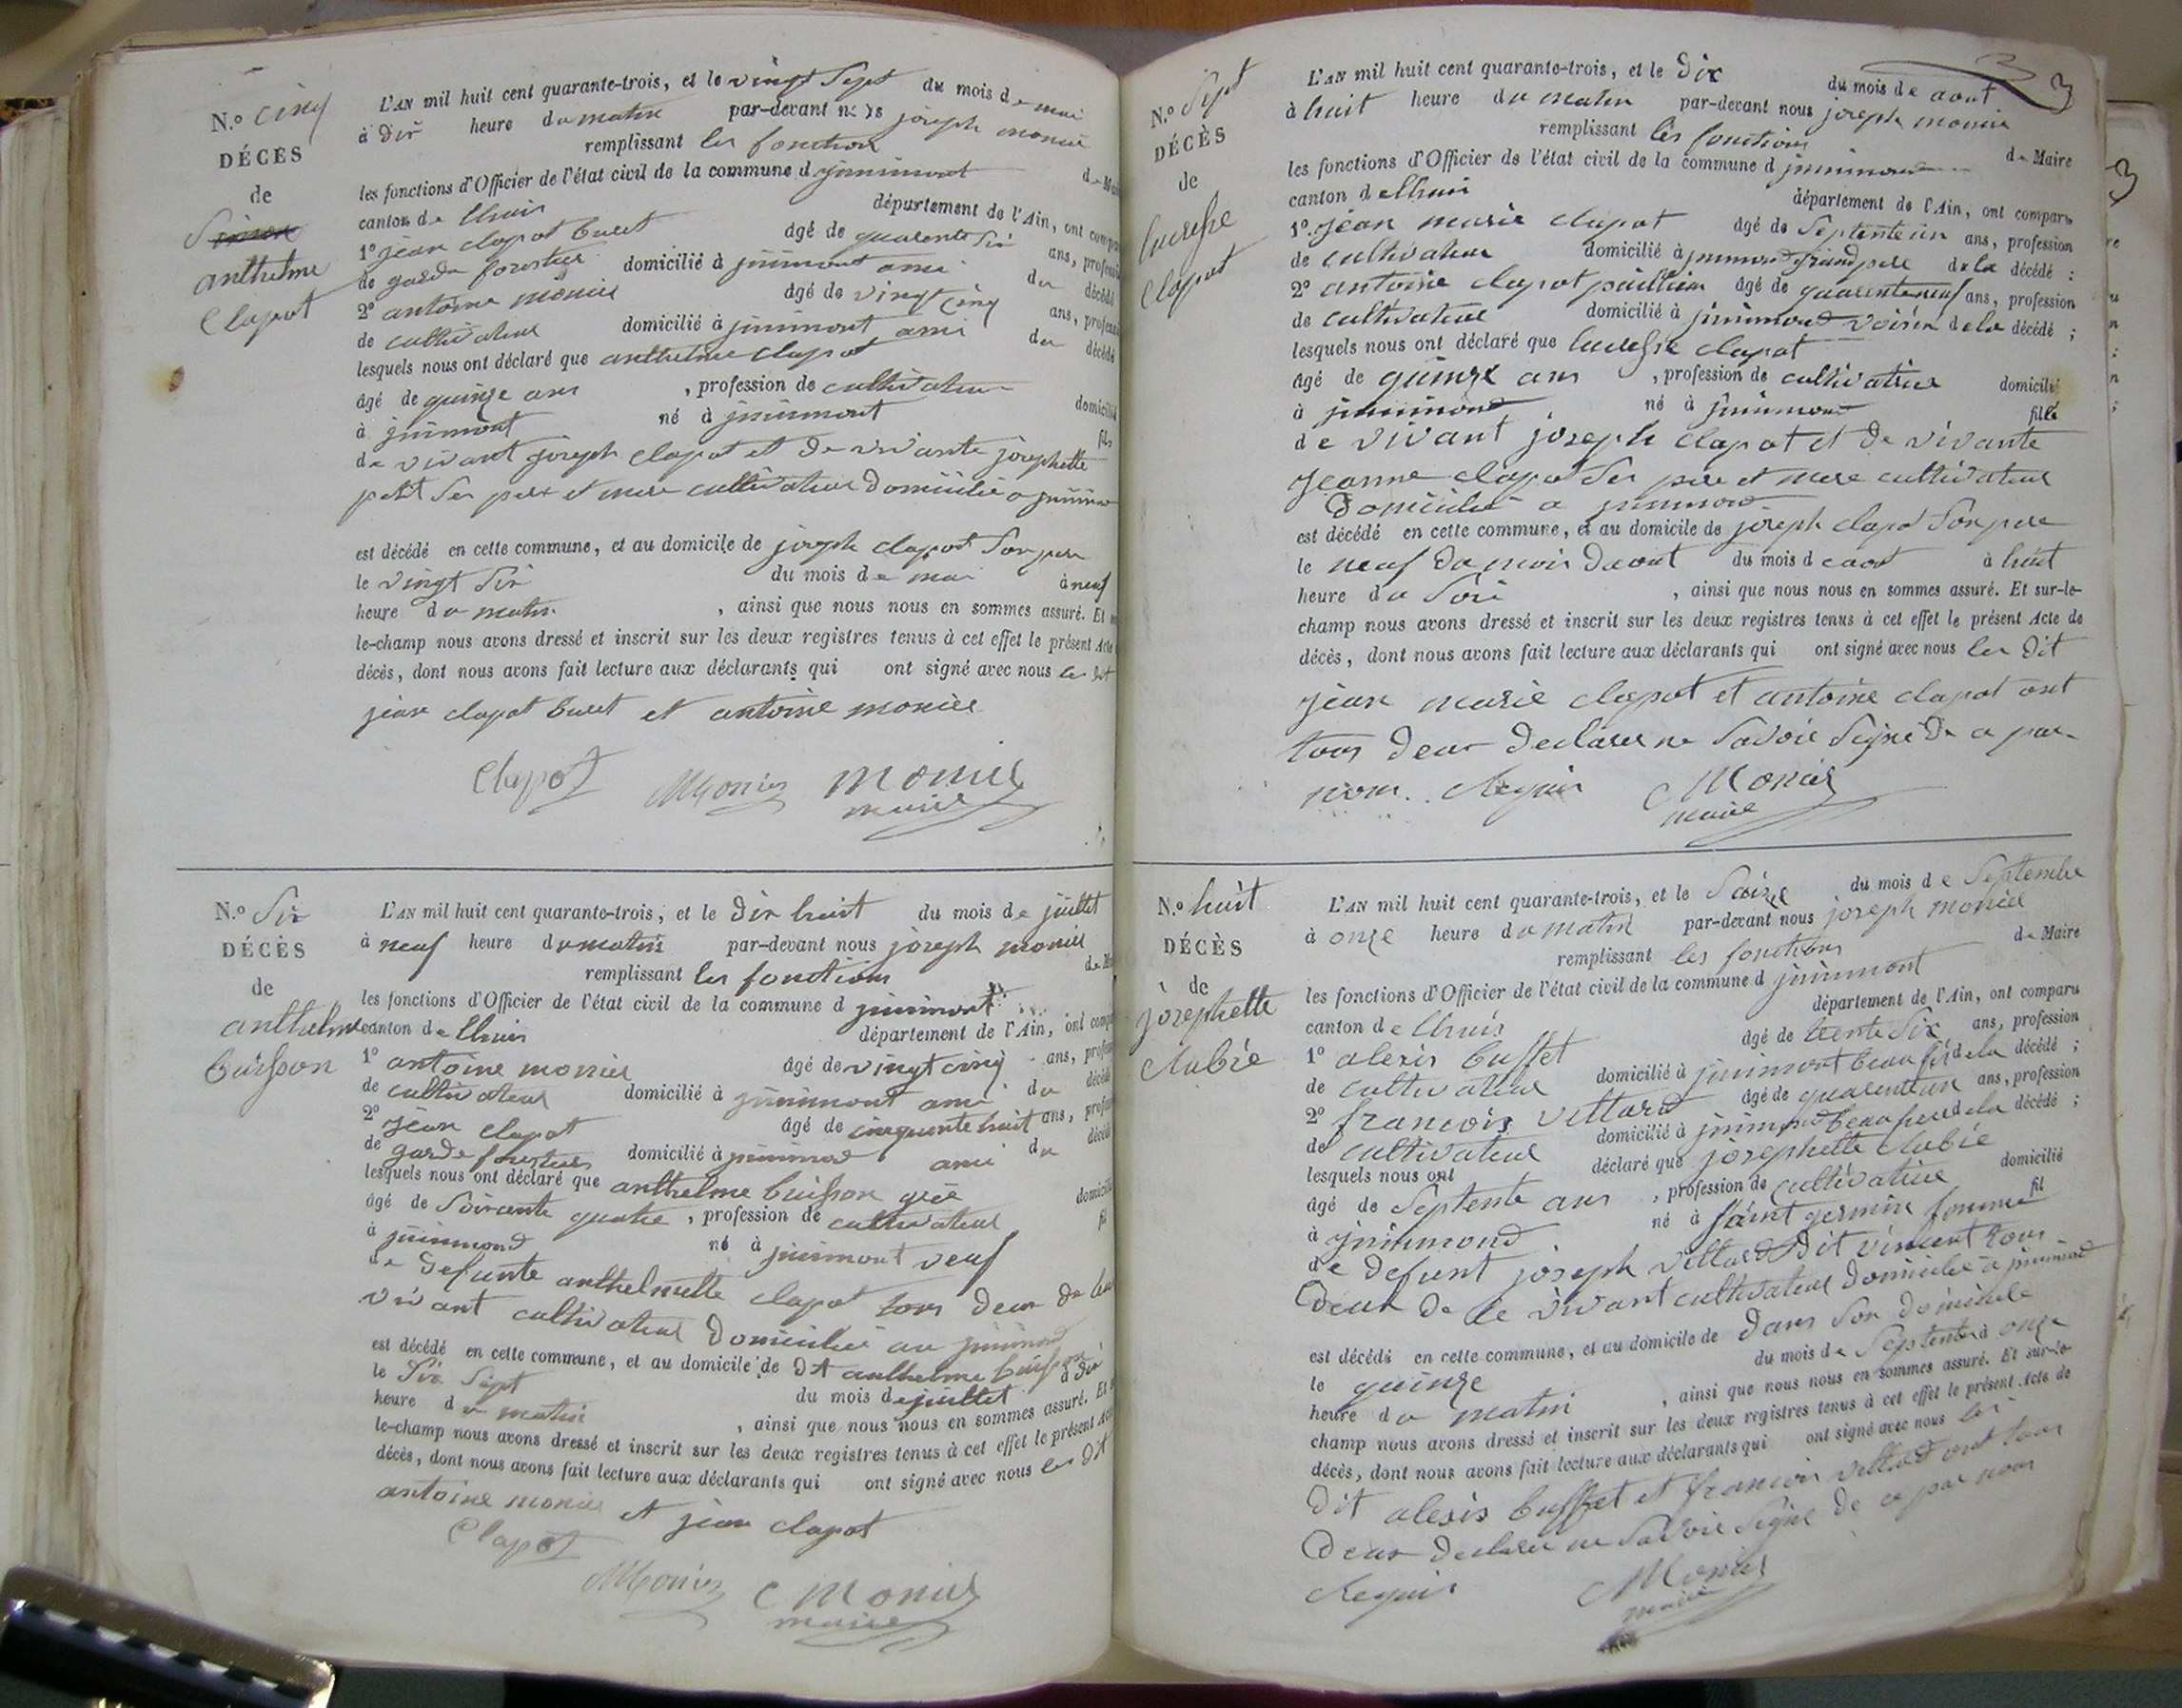 N.o cinq
DÉCÈS
de
anthelme
Clapot
L'AN mil huit cent quarante-trois, et le vingt Sept du mois de mai
à dix heure du matin par-devant nous joseph monier
remplissant les fonction de
les fonctions d'Officier de l'état civil de la commune d jujimont
canton de lhuis département de l'Ain, ont
1º jean clapot buret âgé de quarente Six ans,
de garde forestier domicilié à ami du décédé
2º antoine monier âgé de vingt cinq ans,
de cultivateur domicilié à ami du décédé
lesquels nous ont déclaré que anthelme clapot
âgé de quinze ans , profession de cultivateur domicilié
à né à fils
de vivant joseph clapot et de vivante josephette
petit Ses pere et mere cultivateur domicilié a
est décédé en cette commune, et au domicile de joseph clapot Son pere
le vingt Six du mois de mai à neuf
heure du matin , ainsi que nous nous en sommes assuré. Et
le-champ nous avons dressé et inscrit sur les deux registres tenus à cet effet le présent Acte
décès, dont nous avons fait lecture aux déclarants qui ont signé avec nous les dit
jean clapot buret et antoine monier
Clapot Monier Monier
maire
N.o Six
DÉCÈS
de
anthelme
buisson
L'AN mil huit cent quarante-trois, et le dix huit du mois de juillet
à neuf heure du matin par-devant nous joseph monier
remplissant les fonctions de
les fonctions d'Officier de l'état civil de la commune d
canton de lhuis département de l'Ain, ont
1º antoine monier âgé de vingt cinq ans,
de cultivateur domicilié à ami du décédé
2º jean clapot âgé de cinquante huit ans,
de garde forestier domicilié à ami du décédé
lesquels nous ont déclaré que anthelme buisson
âgé de Soixante quatre , profession de cultivateur domicilié
à né à veuf fil
de defunte anthelmette clapot tous deux de leur
vivant cultivateur domicilié au
est décédé en cette commune, et au domicile de dit anthelme buisson à dix
le dix Sept du mois de juillet
heure du matin , ainsi que nous nous en sommes assuré. Et
le-champ nous avons dressé et inscrit sur les deux registres tenus à cet effet le présent
décès, dont nous avons fait lecture aux déclarants qui ont signé avec nous les dit
antoine monier et jean clapot
Clapot
Monier Monier
maire
3
N.o Sept
DÉCÈS
de
lucresse
Clapot
L'AN mil huit cent quarante-trois, et le dix du mois de aout
à huit heure du matin par-devant nous joseph monier
remplissant les fonctions de Maire
les fonctions d'Officier de l'état civil de la commune d
canton de lhuis département de l'Ain, ont comparu
1º jean marie clapot âgé de Septente un ans, profession
de cultivateur domicilié à grand pere de la décédé ;
2º antoine clapot âgé de quarente neuf ans, profession
de cultivateur domicilié à voisin de la décédé ;
lesquels nous ont déclaré que lucresse clapot
âgé de quinze ans , profession de cultivatrice domicilié
à né à fille
de vivant joseph clapot et de vivante
jeanne clapot Ses pere et mere cultivateur
domicilié a
est décédé en cette commune, et au domicile de joseph clapot Son pere
le neuf du mois daout du mois d aout à huit
heure du Soir , ainsi que nous nous en sommes assuré. Et sur-le-
champ nous avons dressé et inscrit sur les deux registres tenus à cet effet le présent Acte de
décès, dont nous avons fait lecture aux déclarants qui ont signé avec nous les dit
jean marie clapot et antoine clapot ont
tous deux declarer ne Savoir Signé de ce par
nous Requis Monier
maire
N.o huit
DÉCÈS
de
josephette
L'AN mil huit cent quarante-trois, et le Seize du mois de Septembre
à onze heure du matin par-devant nous joseph monier
remplissant les fonctions de Maire
les fonctions d'Officier de l'état civil de la commune d
canton de lhuis département de l'Ain, ont comparu
1º alexis buffet âgé de trente Six ans, profession
de cultivateur domicilié à beau fils de la décédé ;
2º francois vettard âgé de quarente un ans, profession
de cultivateur domicilié à beau frere de la décédé ;
lesquels nous ont déclaré que josephette
âgé de Septente ans , profession de cultivatrice domicilié
à né à Saint germin femme fil
de defunt joseph vettard dit vincent tous
deux de le vivant cultivateur domicilié a
est décédé en cette commune, et au domicile de dans Son domicile
le quinze du mois de Septembre à onze
heure du matin , ainsi que nous nous en sommes assuré. Et sur-le-
champ nous avons dressé et inscrit sur les deux registres tenus à cet effet le présent Acte de
décès, dont nous avons fait lecture aux déclarants qui ont signé avec nous les
dit alexis buffet et francois vettard ont tous
deux declarer ne Savoir Signe de ce par nous
Requis Monier
maire